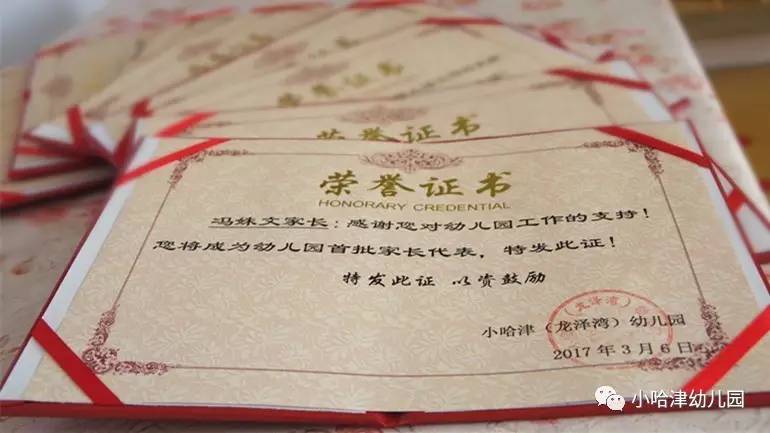 荣誉证书
荣誉证书
HONORARY CREDENTIAL
冯姝文家长：感谢您对幼儿园工作的支持！
您将成为幼儿园首批家长代表，特发此证！
特发此证 以资鼓励
小哈津（龙泽湾）幼儿园
2017年3月6日
（龙泽湾）
小哈津幼儿园